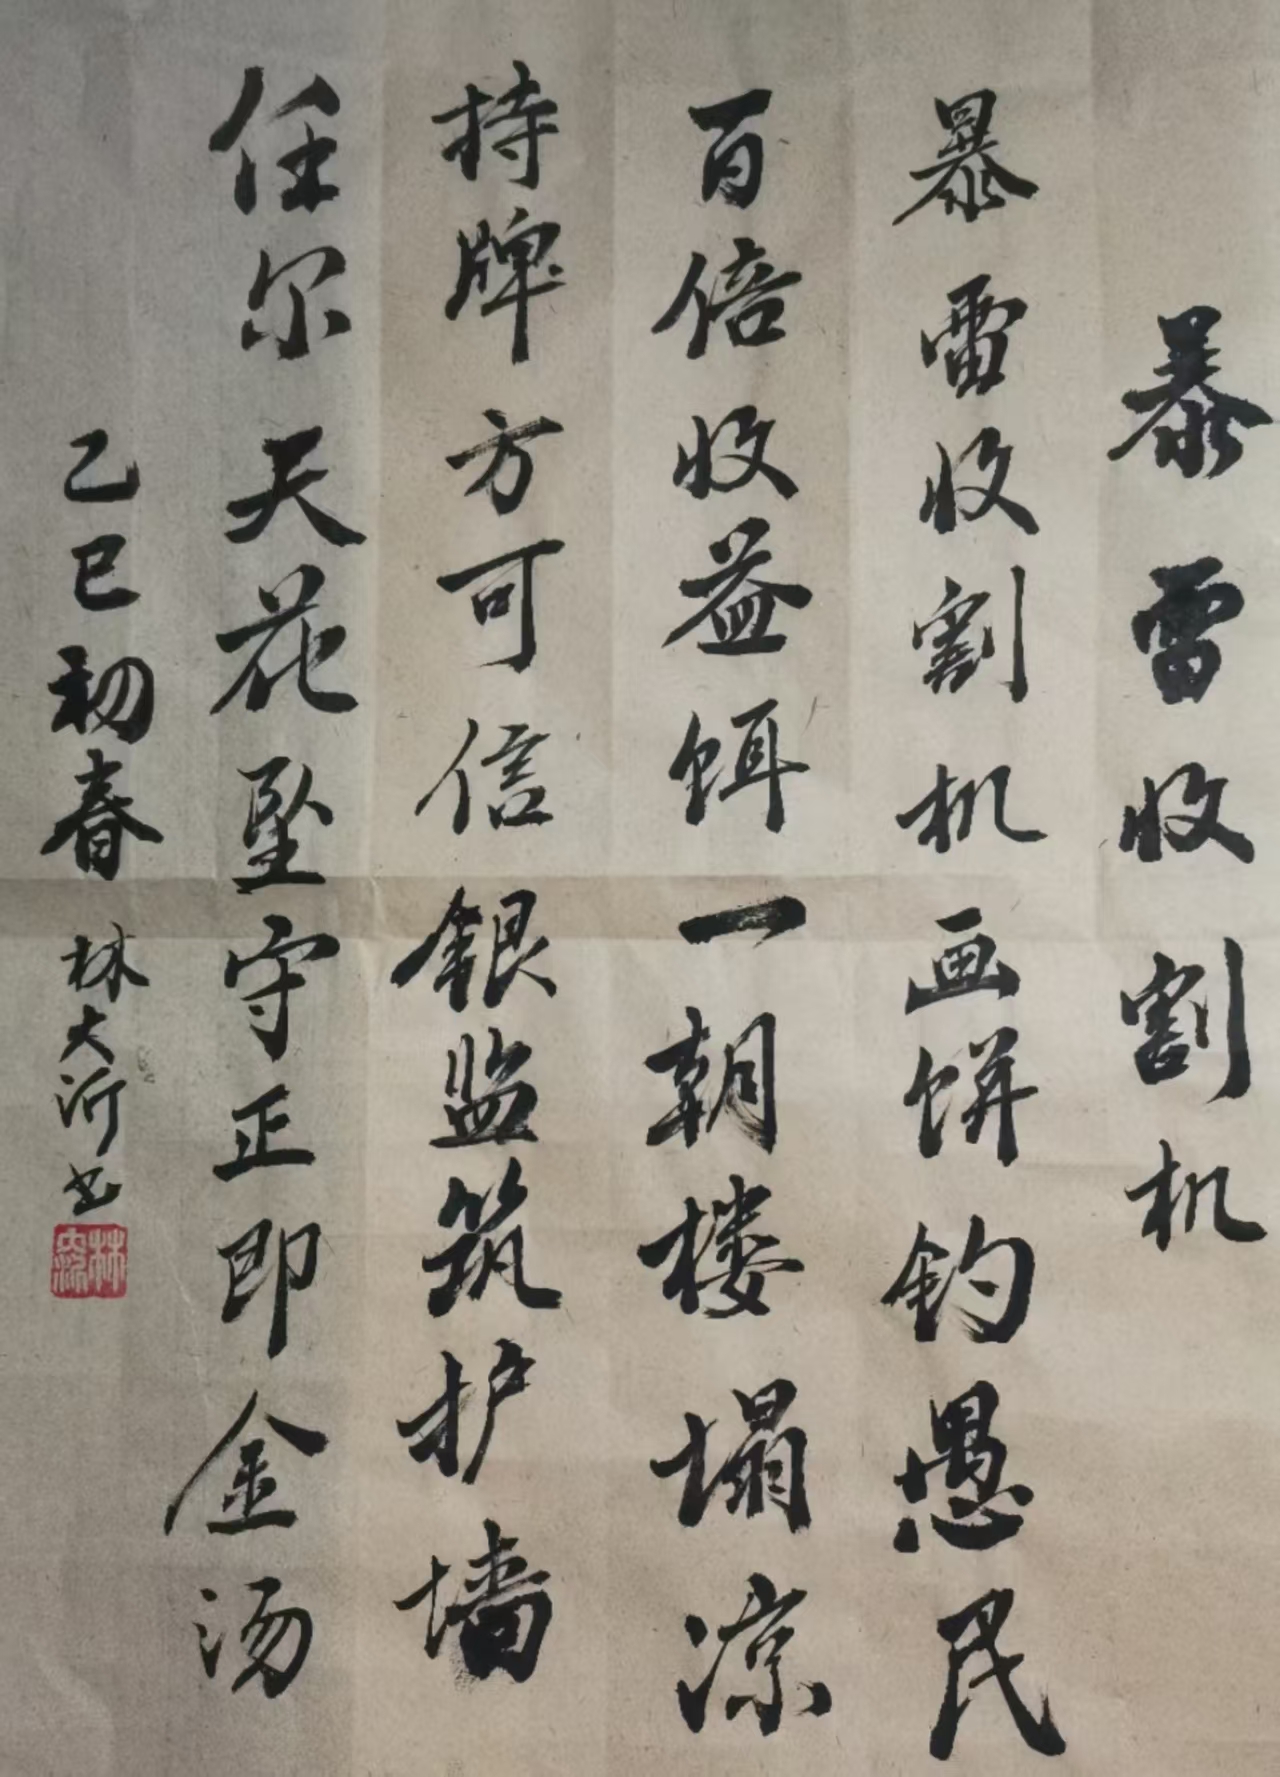 暴雷收割机
暴雷收割机画饼钓愚民
百倍收益饵一朝楼塌凉
持牌方可信银监筑护墙
任尔天花坠守正即金汤
乙巳初春 林大沂书